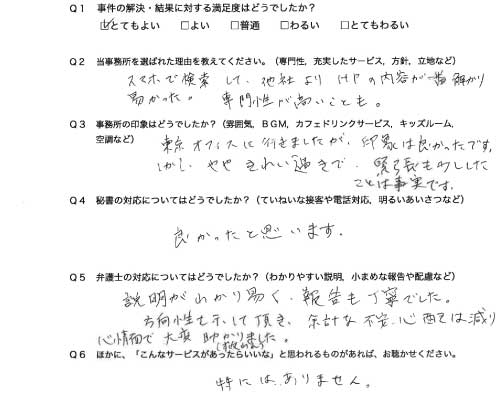 Q1 事件の解決・結果に対する満足度はどうでしたか？
☑とてもよい □よい □普通 □わるい □とてもわるい
Q2 当事務所を選ばれた理由を教えてください。（専門性，充実したサービス，方針，立地など）
スマホで検索して、他社よりHPの内容が一番解かり
易かった。 専門性が高いことも。
Q3 事務所の印象はどうでしたか？（雰囲気，BGM，カフェドリンクサービス，キッズルーム，
空調など）
東京オフィスに行きましたが、印象は良かったです。
しかし、ややきれい過ぎて、緊張も少しした
ことは事実です。
Q4 秘書の対応についてはどうでしたか？（ていねいな接客や電話対応，明るいあいさつなど）
良かったと思います。
Q5 弁護士の対応についてはどうでしたか？（わかりやすい説明，小まめな報告や配慮など）
説明がわかり易く、報告も丁寧でした。
方向性も示して頂き、余計な不安、心配は減り
心情面で大変助かりました。
Q6 ほかに、「こんなサービスがあったらいいな」と思われるものがあれば、お聴かせください。
特にはありません。